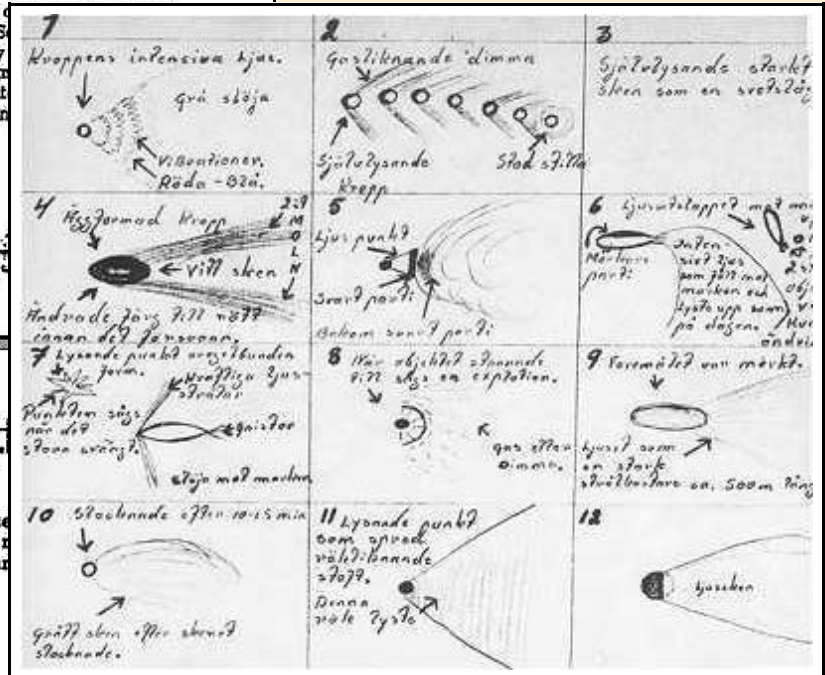 1
Kroppens intensiva ljus.
Grå slöja
Vibrationer.
Röda - Blå.
2
Gasliknande dimma
Självlysande
Kropp
Stod stilla
3
Självlysande starkt
sken som en
4 Äggformad kropp
MOLN
Vitt sken
Ändrade färg till rött
innan det försvann.
5
Ljus punkt
Svart parti
Bakom svart parti
6 Ljusutsläppet mot
Mörkare
parti
Inten
sivt ljus
som föll mot
marken och
lyste upp som
på dagen.
7 Lysande punkt oregelbunden
form.
Kraftiga ljus-
strålar
Punkten sågs
när det
stora svängt.
gnistor
slöja mot marken
8 När objektet stannade
till sågs en explotion.
gas eller
dimma.
9 Foremålet var mörkt.
Ljuset som
en stark
strålkastare ca. 500m lång
10 Slocknade efter 10-15 min
Grått sken efter skenet
slocknade.
11 Lysande punkt
som spred
nätliknande
stoft.
Denna
lyste
12
Ljussken